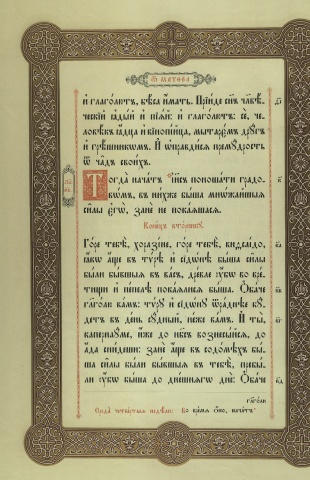 Ѿ МАТѲЕА
и҆ глаго́лютъ, бѣ́са и҆́мать. Прїи́де сн҃ъ чл҃вѣ́-
ческїй ꙗ҆ды́й и҆ пїѧ́й: и҆ глаго́лютъ: сѐ, че-
ловѣ́къ ꙗ҆дца̀ и҆ вїнопі́йца, мытарє́мъ дрꙋ́гъ
и҆ грѣ́шникѡмъ. И҆ ѡ҆правди́сѧ премꙋ́дрость
ѿ ча̑дъ свои́хъ.
Тогда̀ нача́тъ І҆и҃съ поноша́ти градо-
вѡ́мъ, въ ни́хже бы́ша мнѡ́жайшыѧ
си̑лы є҆гѡ̀, занѐ не пока́ѧшасѧ.
Коне́цъ вто́рникꙋ.
Го́ре тебѣ̀, хоразі́не, го́ре тебѣ̀, виѳсаі́до:
ꙗ҆́кѡ а҆́ще въ тѵ́рѣ и҆ сїдѡ́нѣ бы́ша си̑лы
бы́ли бы̑вшыѧ въ ва́съ, дре́вле ᲂу҆́бѡ во вре́-
тищи и҆ пе́пелѣ пока́ѧлисѧ бы́ша. Ѻ҆ба́че
гл҃голю ва́мъ: тѵ́рꙋ и҆ сїдѡ́нꙋ ѿра́днѣе бꙋ́-
детъ въ де́нь сꙋ́дный, не́же ва́мъ. И҆ ты̀,
капернаꙋ́ме, и҆́же до нб҃съ вознесы́йсѧ, до
а҆́да сни́деши: занѐ а҆́ще въ содо́мѣхъ бы́-
ша си̑лы бы́ли бы̑вшыѧ въ тебѣ̀, пребы́-
ли ᲂу҆́бѡ бы́ша до дне́шнѧгѡ днѐ: Ѻ҆ба́че
гл҃голю
Среда̀ четве́ртаѧ недѣ́ли: Во вре́мѧ ѻ҆́но, нача́тъ